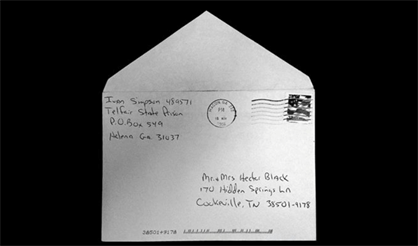 Ivan Simpson 489571
Telfair State Prison
P.O. Box 549
Helena Ga 31037
PM
Mr. & Mrs Hector Black
170 Hidden Springs Ln
Cookville, TN 38501-9178
38501+9178